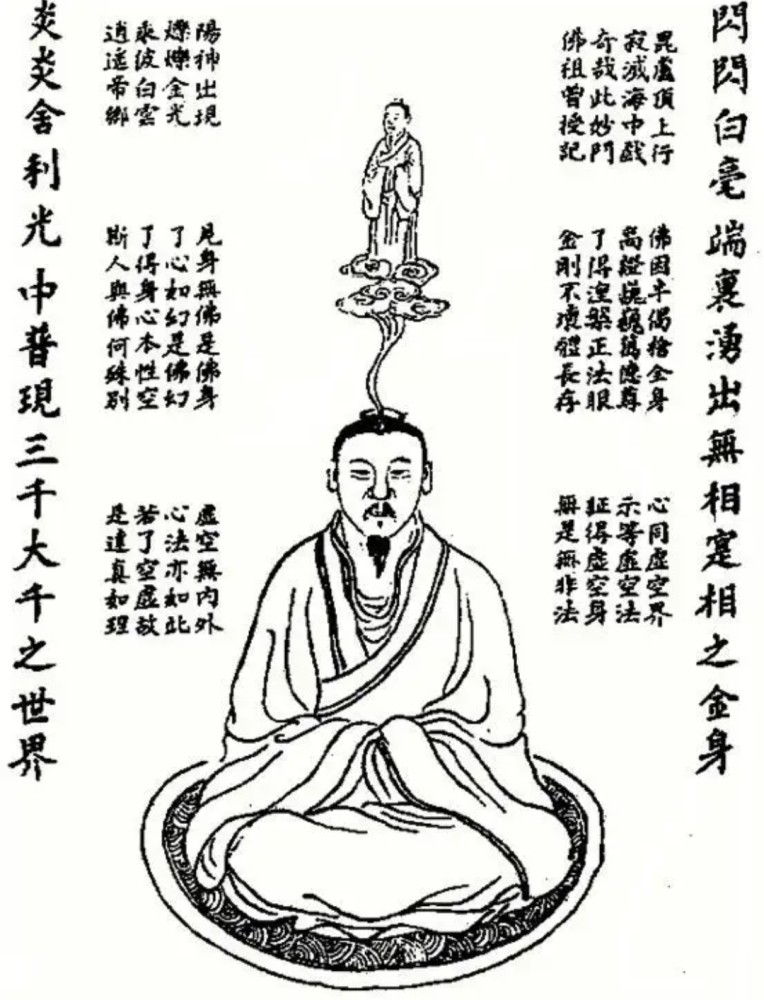 閃閃白毫端裏湧出無相寔相之金身
毘盧頂上行
寂滅海中戲
奇哉此妙門
佛祖曾授記
佛因半偈捨全身
高巍巍萬德尊
了得涅槃正法眼
金剛不壞體長存
心同虛空界
示等虛空法
証得虛空身
無是無非法
陽神出現
爍爍金光
乘彼白雲
逍遙帝鄉
見身無佛是佛身
了心如幻是佛幻
了得身心本性空
斯人與佛何殊別
虛空無內外
心法亦如此
若了空虛故
是達真如理
炎炎舍利光中普現三千大千之世界